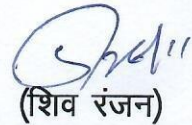 (शिव रंजन)